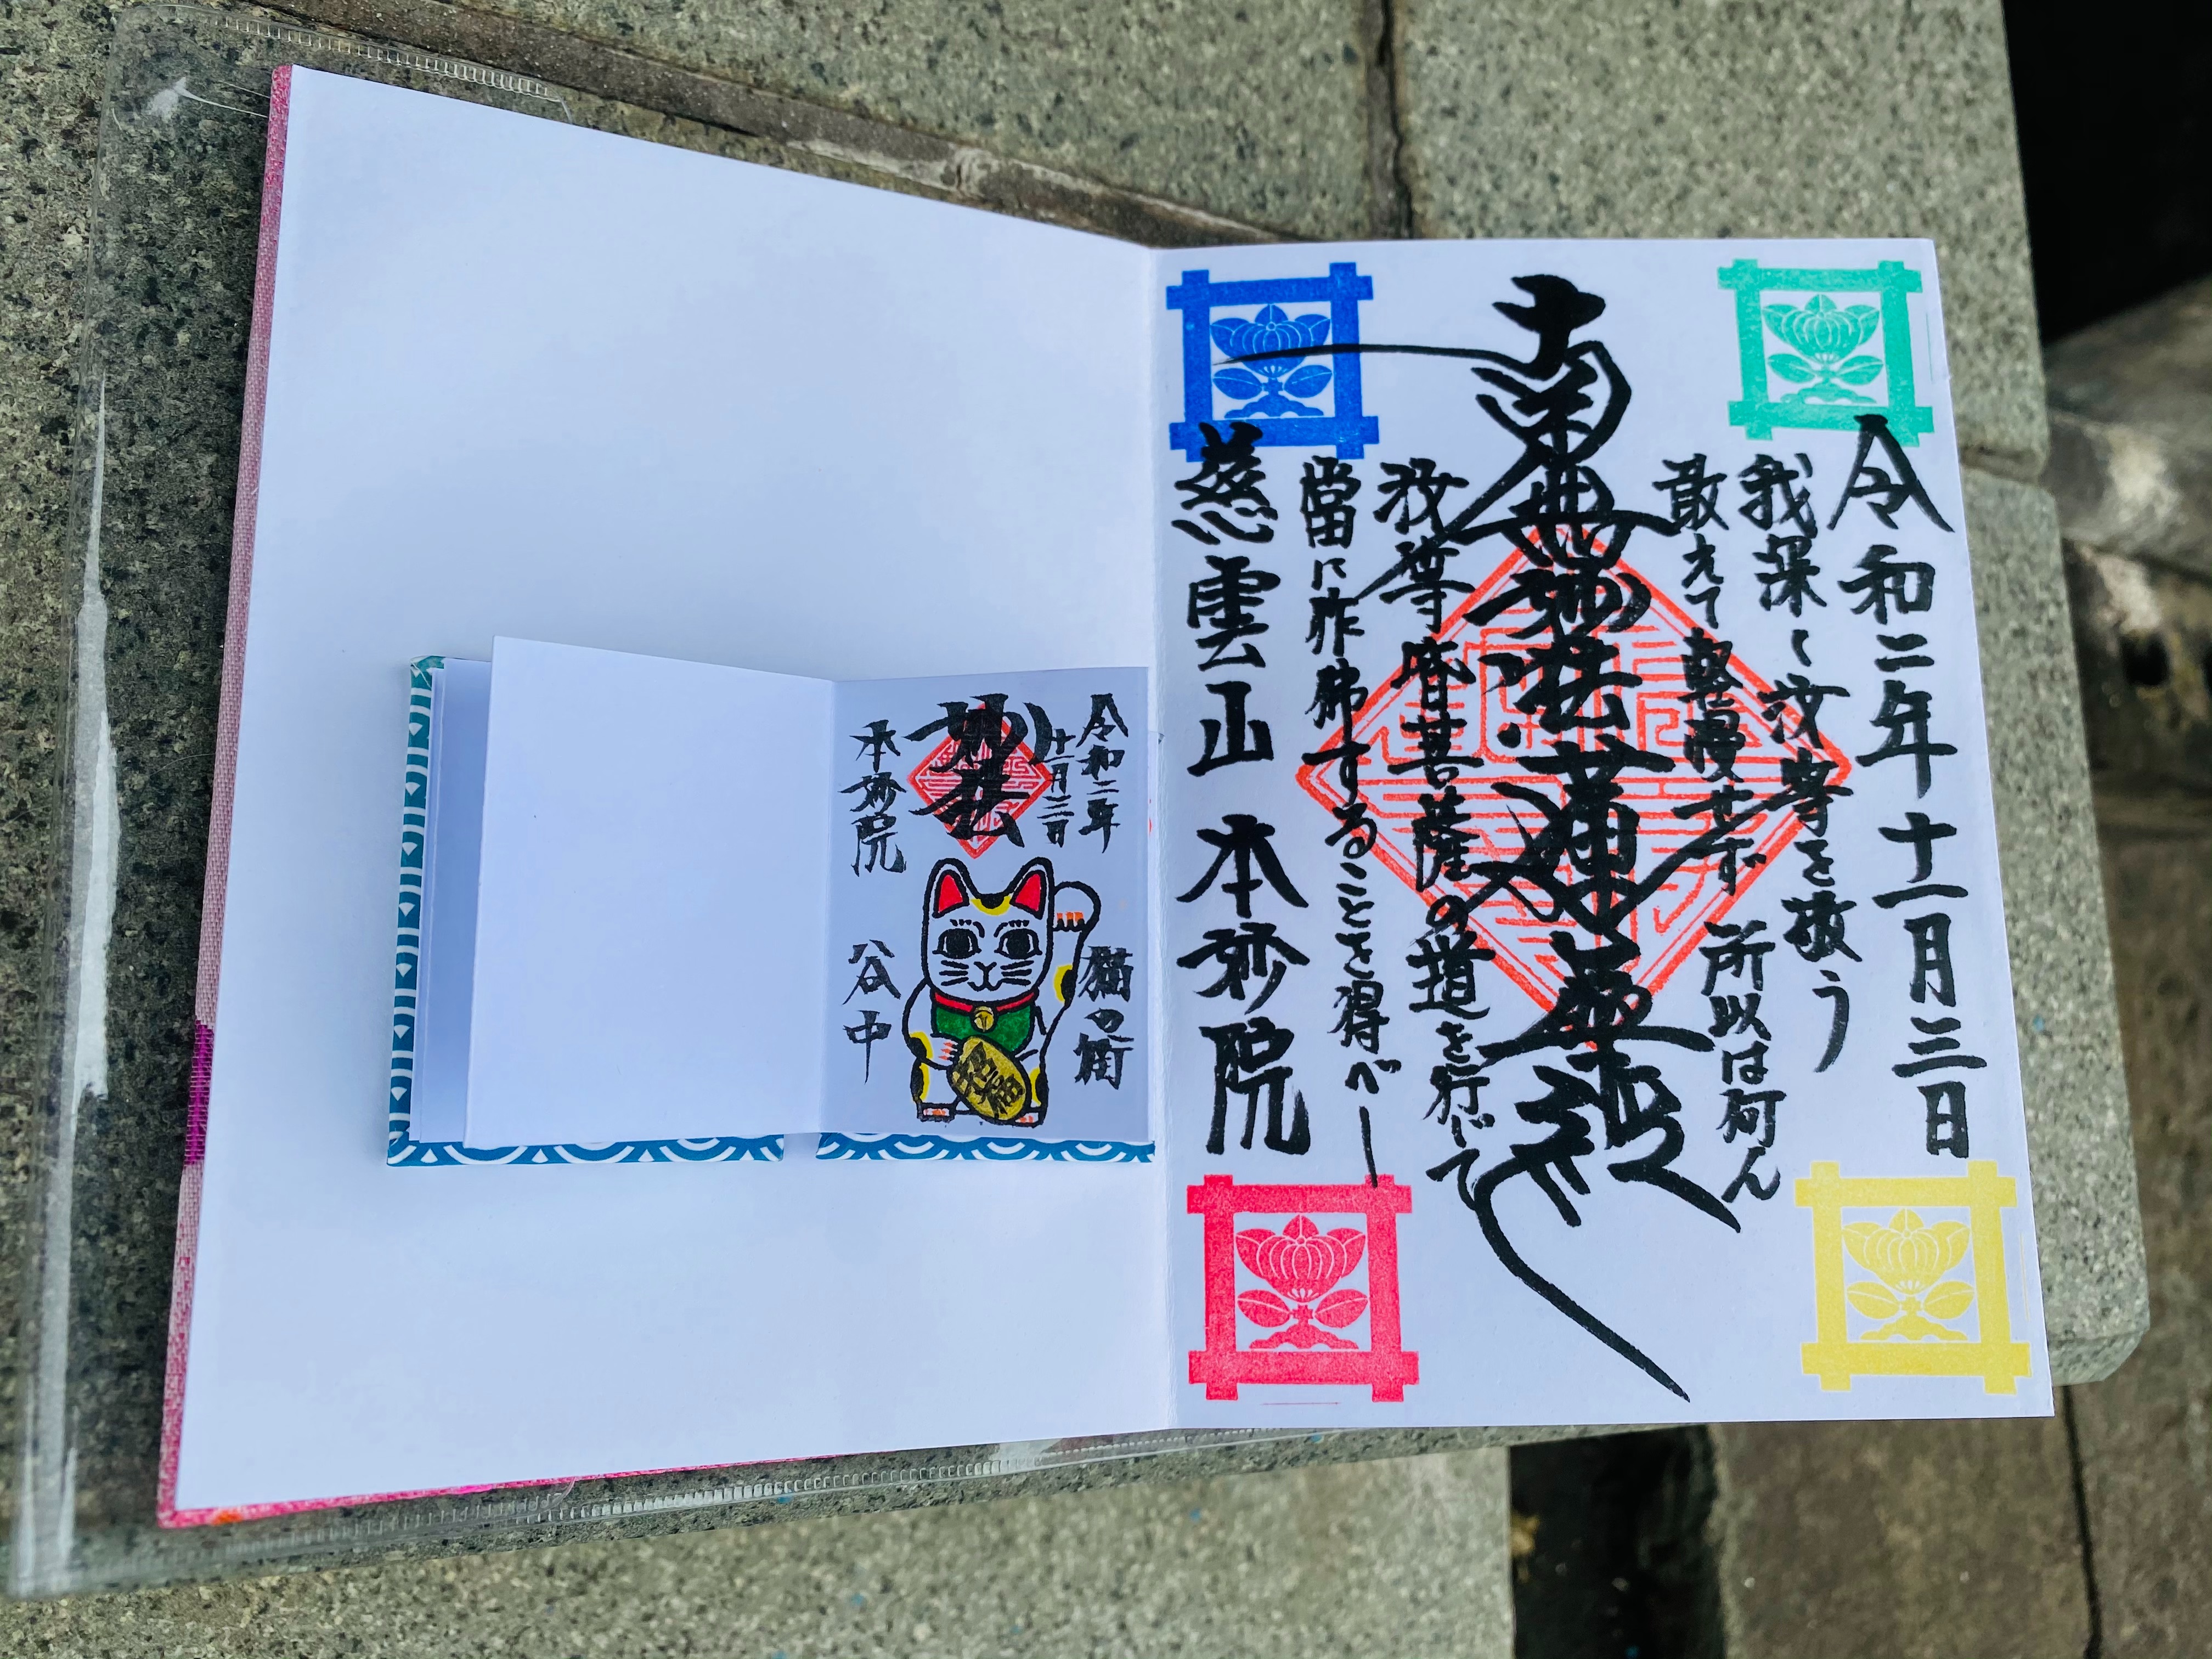 令和二年十一月三日
我深く汝等を敬う
敢えて輕慢せず 所以は何ん
南無妙法蓮華経
汝等皆菩薩の道を行じて
當に作佛することを得べし
慈雲山 本妙院
令和二年
十一月三日
妙法
本妙院
猫の街
招福
谷中